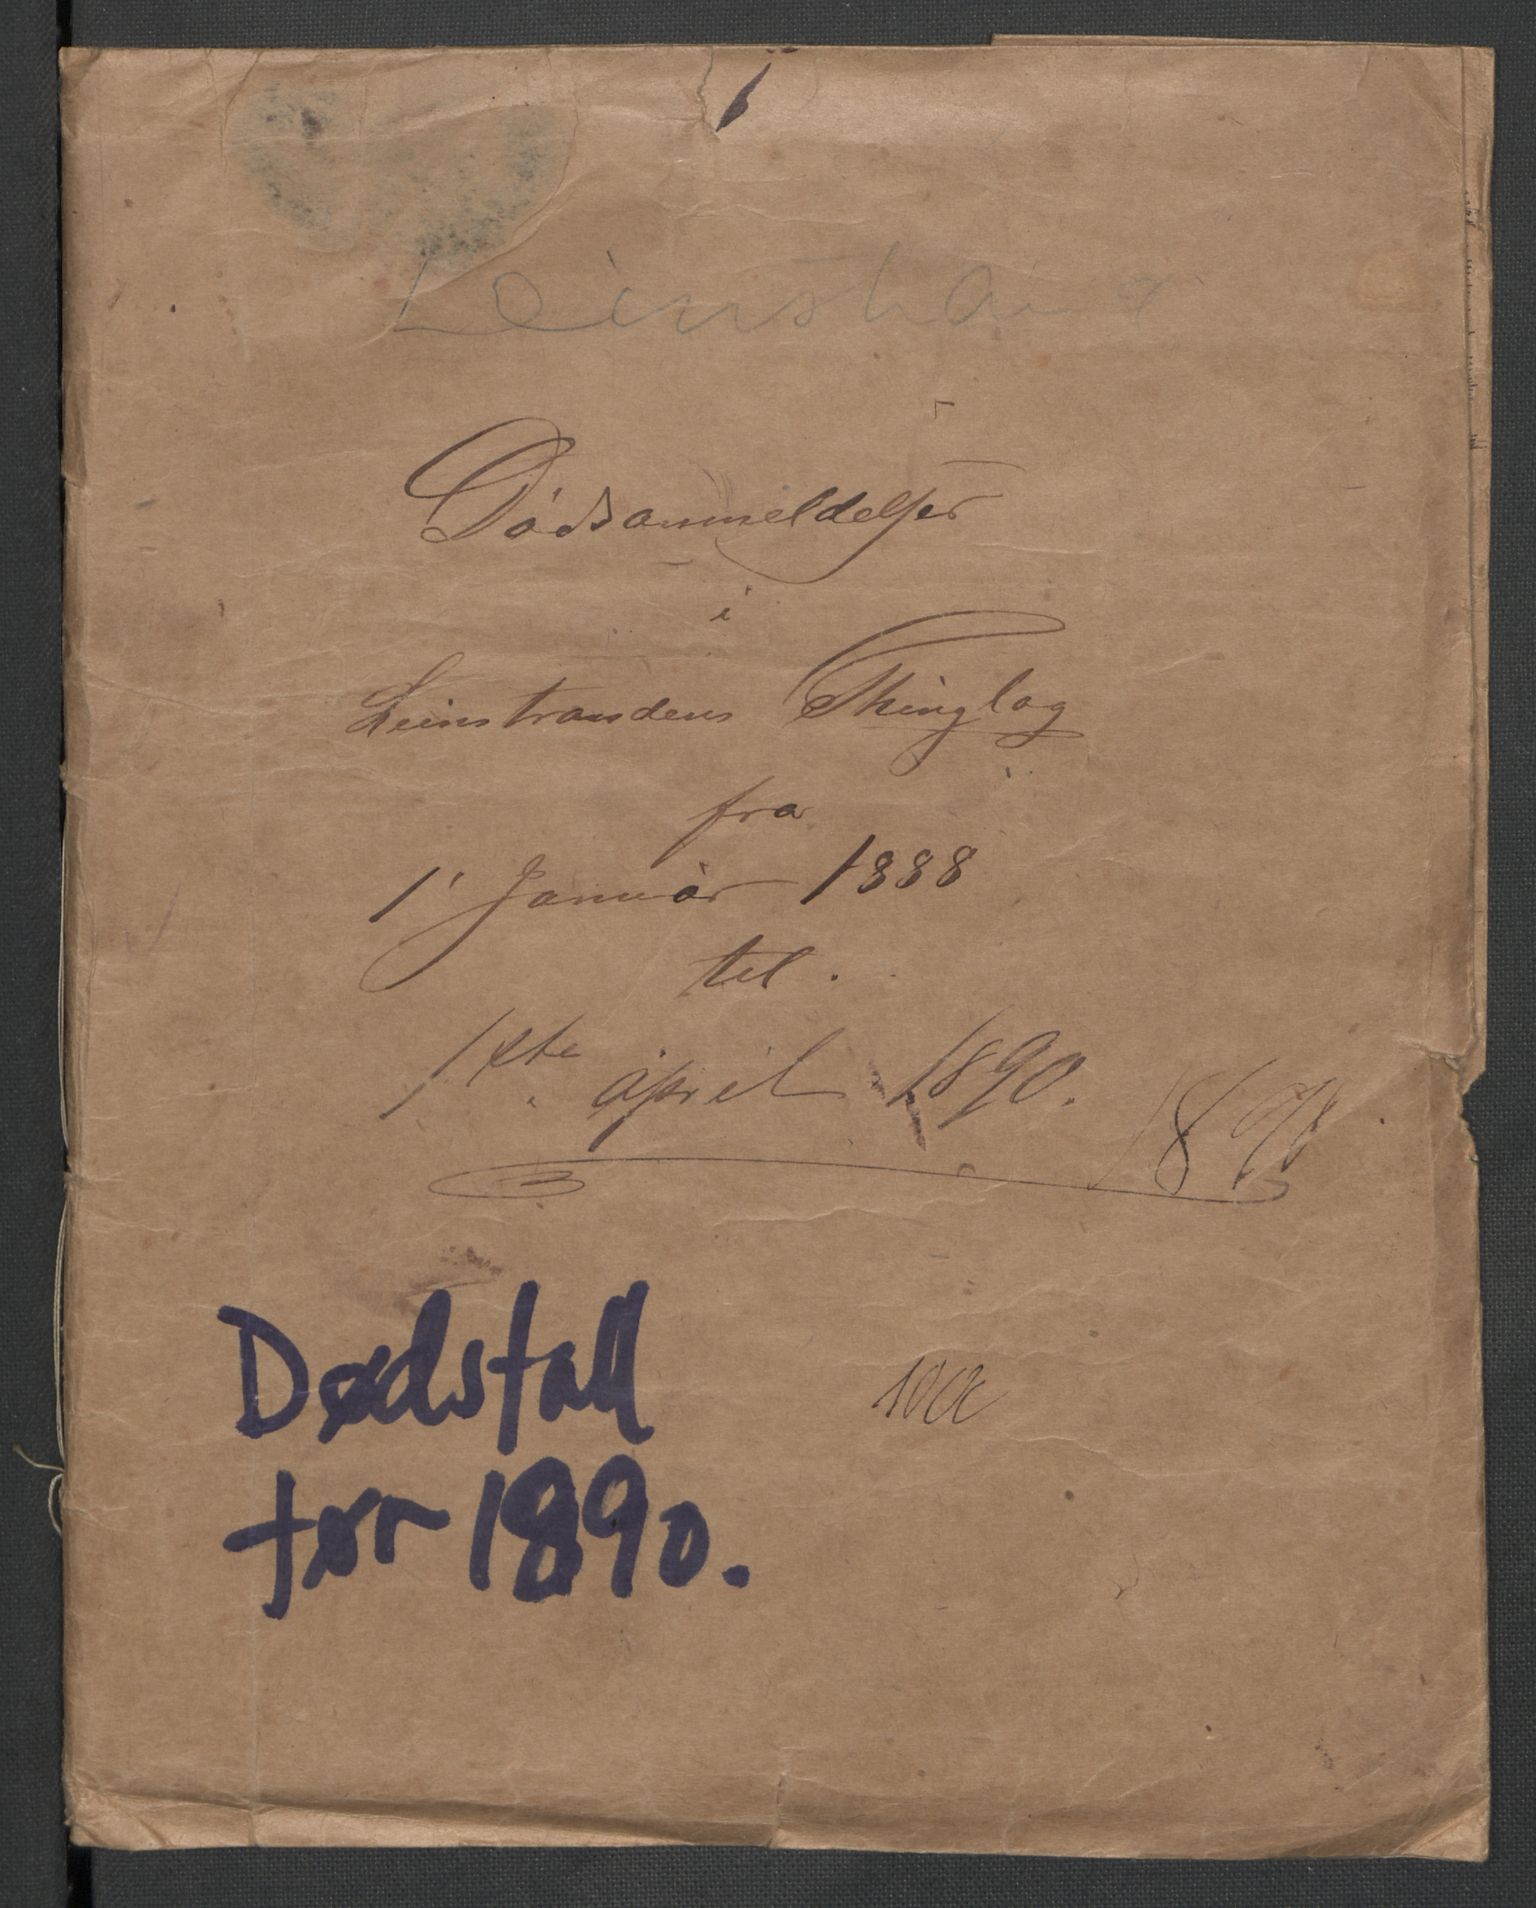 Dødsanmeldelser
i
Leinstrandens Thinglag
fra
1' Januar 1888
til.
1ste april 1890.
1890
Dødsfall
før 1890.